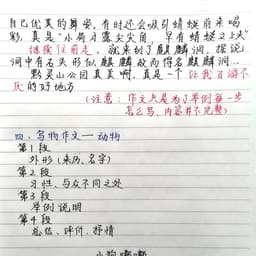 自己优美的舞姿,有时还会吸引蜻蜓前来喝
彩,真是“小荷才露尖尖角,早有蜻蜓立上头”
继续往前走,就来到了麒麟洞,据说
洞中有石头形似麒麟故而得名麒麟洞...
黔灵山公园真美啊,真是一个让我百游不
厌的好地方
(注意:作文只是为了举例每一步
怎么写、内容并不完整)
四、写物作文——动物
第1段
外形(来历、名字)
第2段
习性、与众不同之处
第3段
举例说明
第4段
总结、评价、抒情
小狗嘟嘟